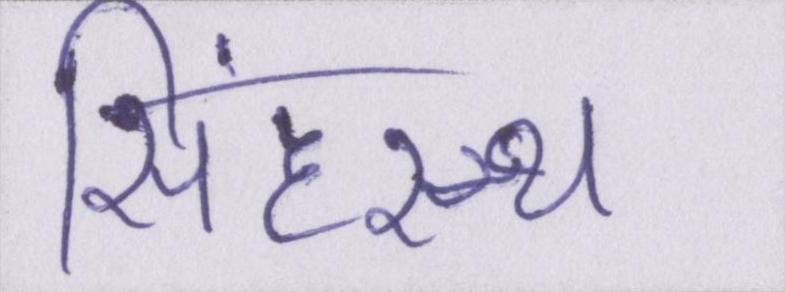 सिंहस्थ